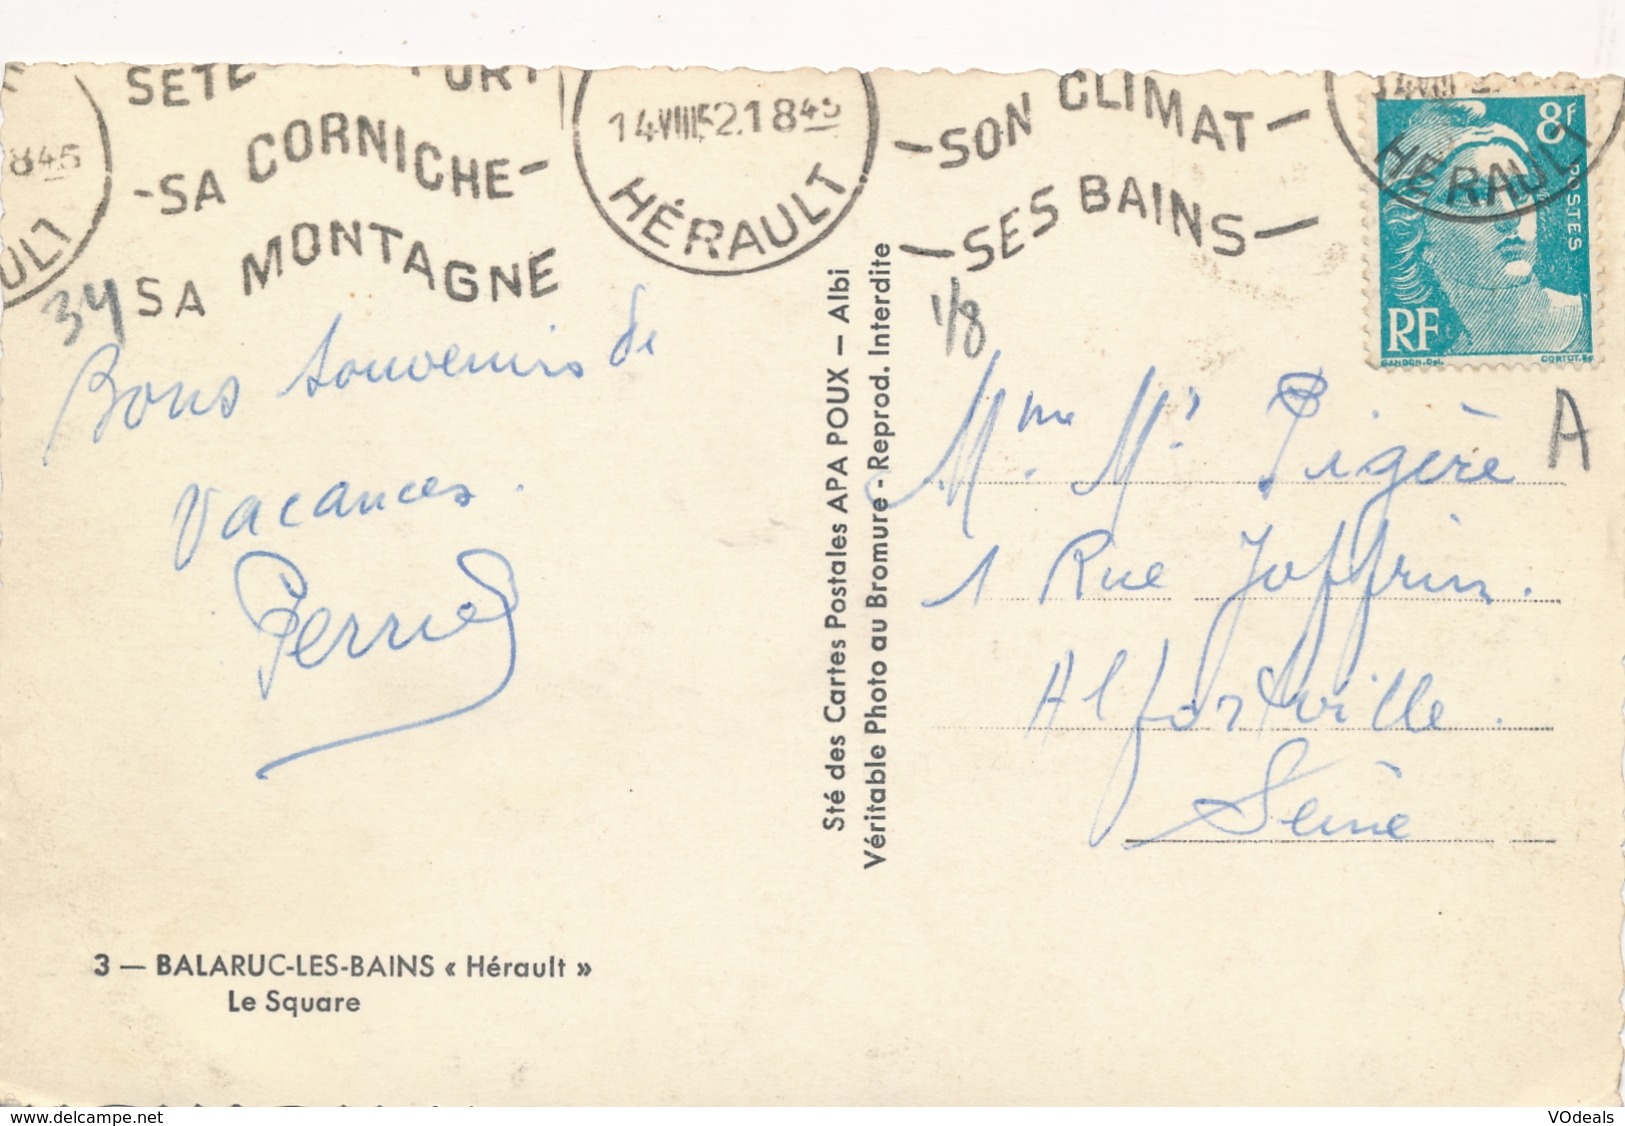 SETE
- SA CORNICHE -
SA MONTAGNE
14 VIII 52.18 45
HÉRAULT
- SON CLIMAT -
- SES BAINS -
845
HÉRAULT
8F
POSTES
RF
GANDON.Del.
CORTOT.
34
1/8
A
Bons souvenirs de
vacances.
Mme Mr Pigère
1 Rue Joffrin.
Alfortville.
Seine
Sté des Cartes Postales APA POUX — Albi
Véritable Photo au Bromure - Reprod. Interdite
3 — BALARUC-LES-BAINS « Hérault »
Le Square
www.delcampe.net
VOdeals